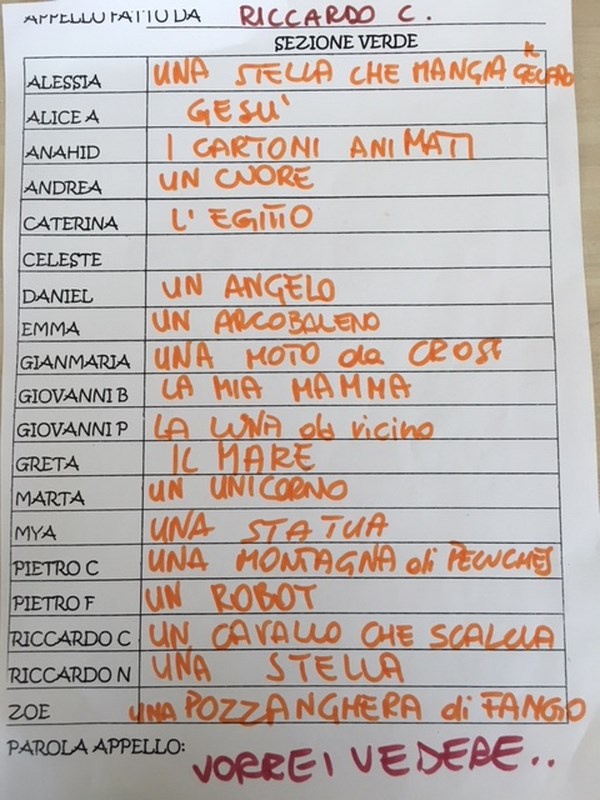 APPELLO FATTO DA RICCARDO C.
SEZIONE VERDE
ALESSIA UNA STELLA CHE MANGIA IL GELATO
ALICE A GESU'
ANAHID I CARTONI ANIMATI
ANDREA UN CUORE
CATERINA L'EGITTO
CELESTE
DANIEL UN ANGELO
EMMA UN ARCOBALENO
GIANMARIA UNA MOTO da CROSS
GIOVANNI B LA MIA MAMMA
GIOVANNI P LA LUNA da vicino
GRETA IL MARE
MARTA UN UNICORNO
MYA UNA STATUA
PIETRO C UNA MONTAGNA di PELUCHES
PIETRO F UN ROBOT
RICCARDO C UN CAVALLO CHE SCALCIA
RICCARDO N UNA STELLA
ZOE UNA POZZANGHERA di FANGO
PAROLA APPELLO: VORREI VEDERE..